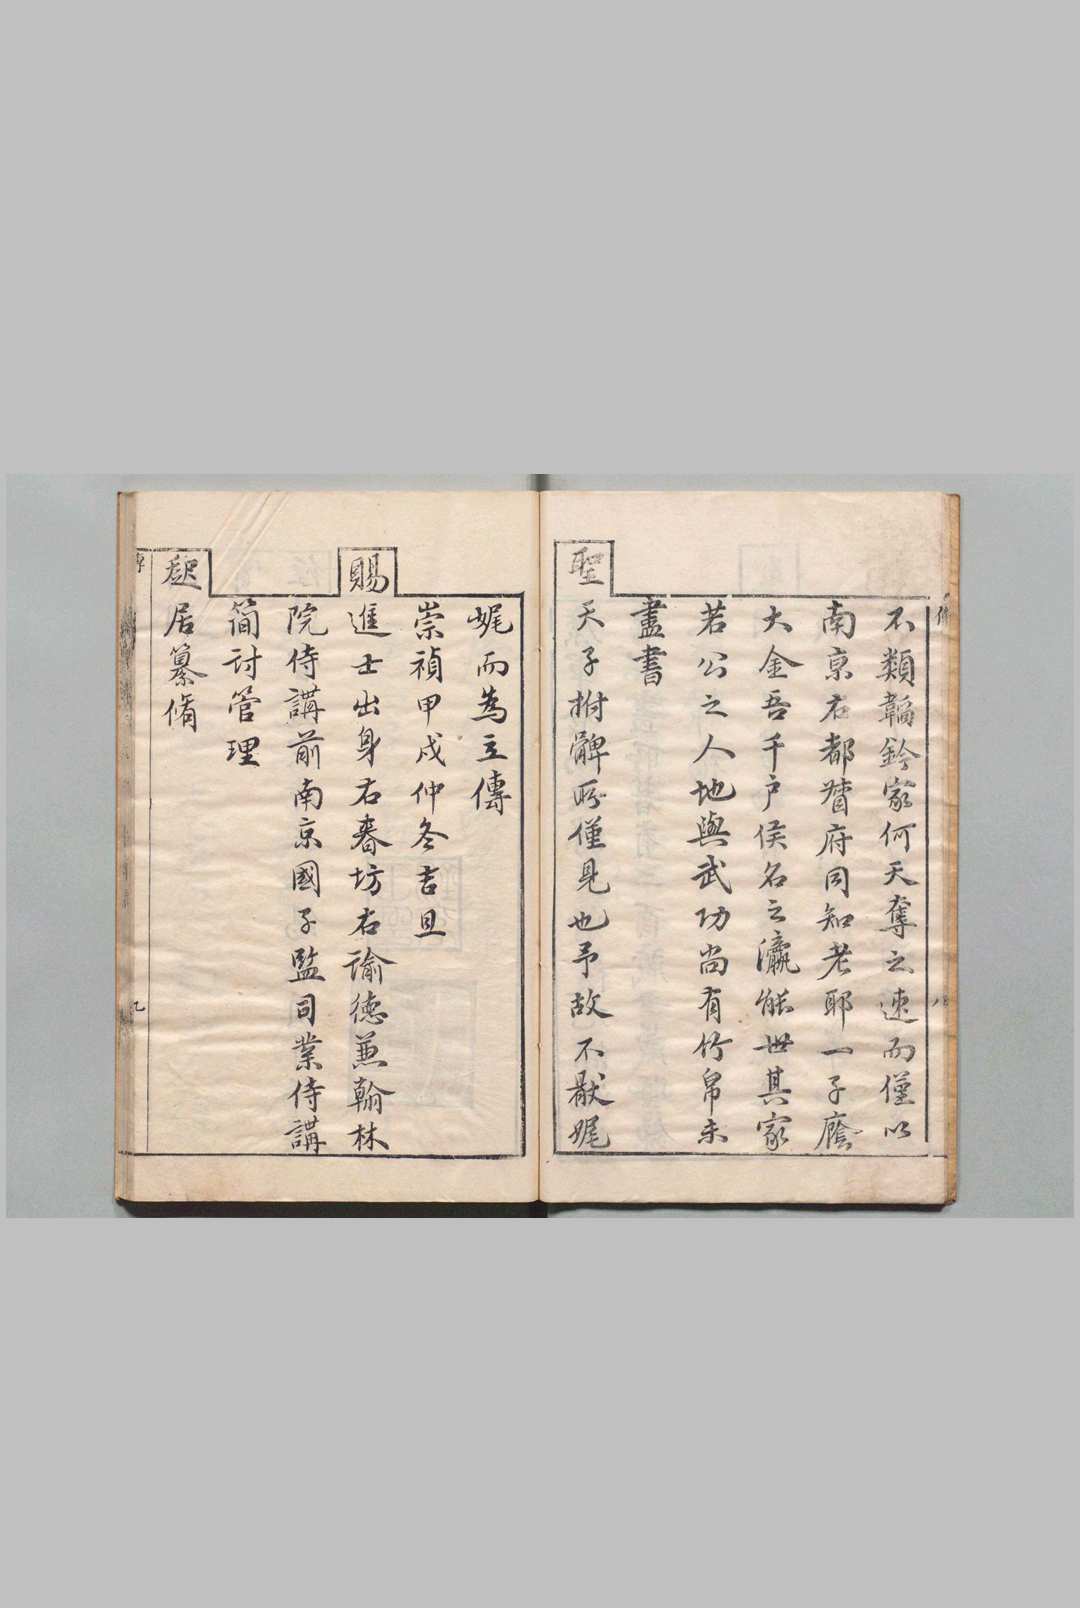 不類韜鈐家何天奪之速而僅以
南京右都督府同知老耶一子廕
大金吾千戶侯名之瀛能世其家
若公之人地與武功尚有竹帛未
盡書
聖天子拊髀所僅見也予故不厭娓
娓而為立傳
崇禎甲戌仲冬吉旦
賜進士出身右春坊右諭德兼翰林
院侍講前南京國子監司業侍講
簡討管理
起居纂脩